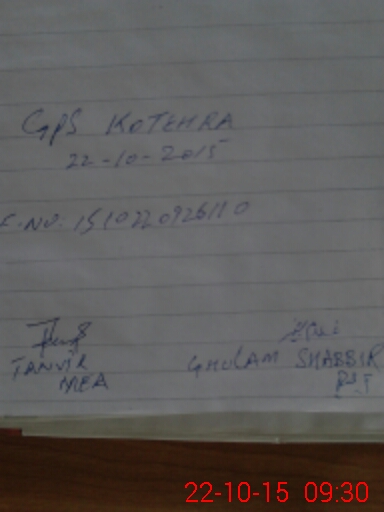 GPS KOTEHRA
22-10-2015
F.NO. 151022092611 0
TANVIR
MEA
GHULAM SHABBIR
22-10-15 09:30